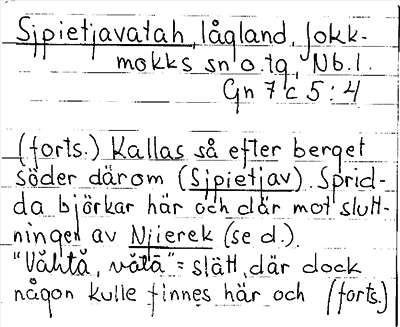 Sjpietjavatah, lågland, Jokk-
mokks sn o. tg, Nb. l.
Gn 7 c 5 : 4
(forts.) Kallas så efter berget
söder därom (Sjpietjav). Sprid-
da björkar här och där mot slutt-
ningen av Njierek (se d.).
"Våhtå, våtā" = slätt, där dock
någon kulle finnes här och (forts.)